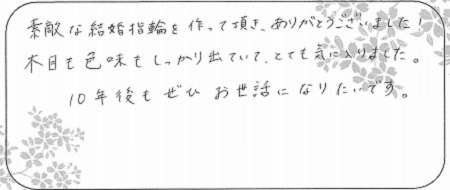 素敵な結婚指輪を作って頂き、ありがとうございました!
木目も色味もしっかり出ていて、とても気に入りました。
10年後もぜひお世話になりたいです。